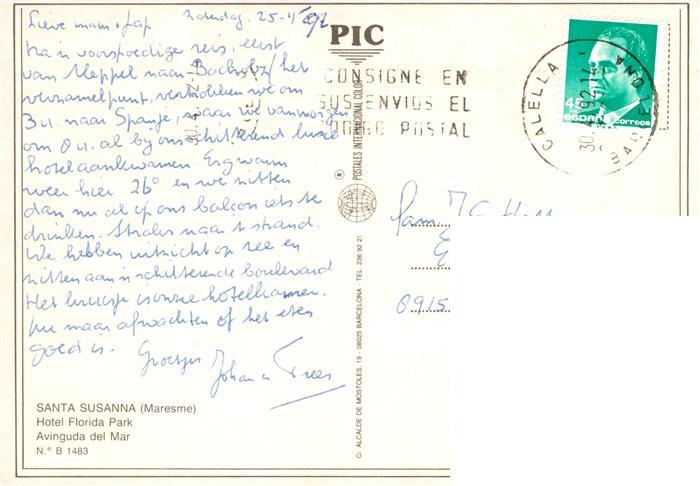 Zaterdag. 25-4 '92
Lieve mam + Jap
Na 'n voorspoedige reis, eerst
van Meppel naar Bocholtz / het
verzamelpunt, vertrokken we om
3 u. naar Spanje, waar we vanmorgen
om 8 u. al bij ons schitterend luxe
hotel aankwamen. Erg warm
weer hier 26° en we zitten
dan nu al op ons balcon iets te
drinken. Straks naar 't strand.
We hebben uitzicht op zee en
zitten aan 'n schitterende boulevard
Het kruisje is onze hotelkamer.
Nu maar afwachten of het eten
goed is. Groetjes
Johan en Trees
SANTA SUSANNA (Maresme)
Hotel Florida Park
Avinguda del Mar
N.º B 1483
PIC
CONSIGNE EN
SUS ENVIOS EL
CODIGO POSTAL
CALELLA
BARCELONA
45
ESPAÑA
correos
POSTALES INTERNACIONAL COLOR
®
C/. ALCALDE DE MOSTOLES, 19 - 08025 BARCELONA - TEL. 236 92 21
Fam.
6915